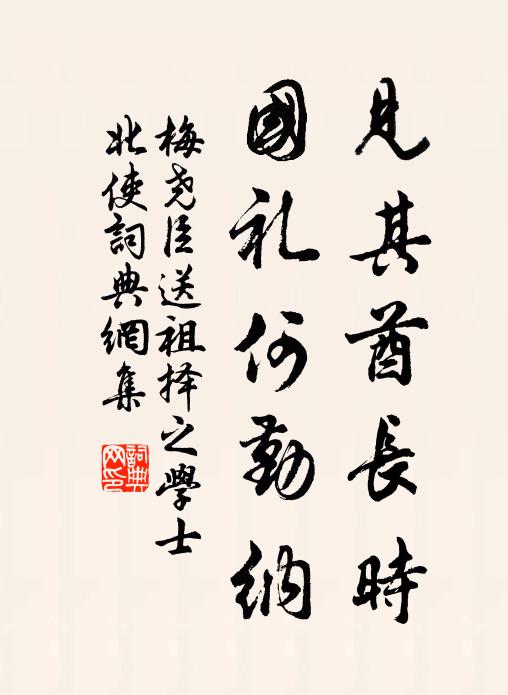 見其酋長時
國礼何勤納
梅尧臣送祖择之學士
北使詞典網集
詞典网印